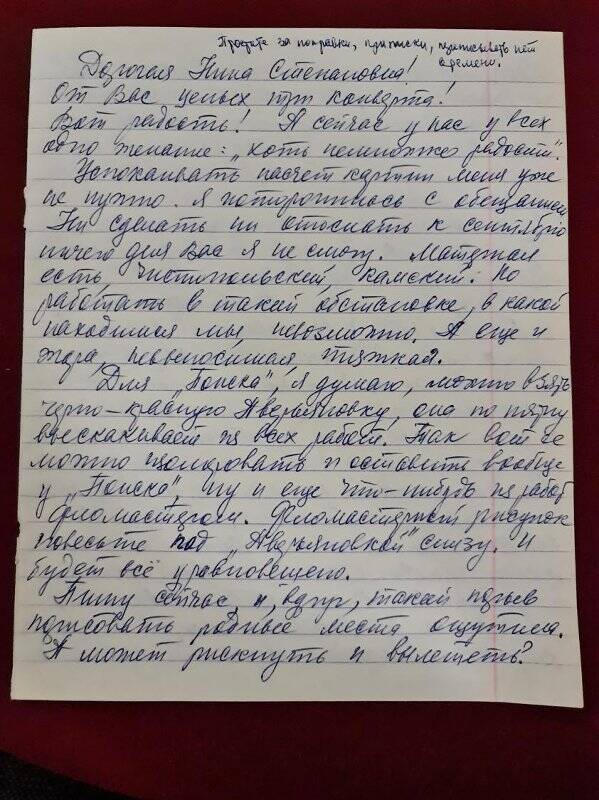 Простите за поправки, приписки, переписывать нет
времени.
Дорогая Нина Степановна!
От Вас целых три конверта!
Вот радость! А сейчас у нас у всех
одно желание: "хоть немножко радости".
Успокаивать насчет картин меня уже
не нужно. Я поторопилась с обещанием
Ни сделать ни отослать к сентябрю
ничего для Вас я не смогу. Материал
есть, Чистопольский, камский. Но
работать в такой обстановке, в какой
находимся мы, невозможно. А еще и
жара, невыносимая, тяжкая.
Для "Поиска", я думаю, можно взять
черно-красную Аверьяновку, она по пятну
выскакивает из всех работ. Так вот ее
можно изолировать и оставить вообще
у "Поиска", ну и еще что-нибудь из работ
фломастером. Фломастерный рисунок
повесьте под "Аверьяновкой" снизу. И
будет всё уравновешено.
Пишу сейчас, и, вдруг, такой позыв
рисовать родные места ощутила.
А может рискнуть и вылететь?